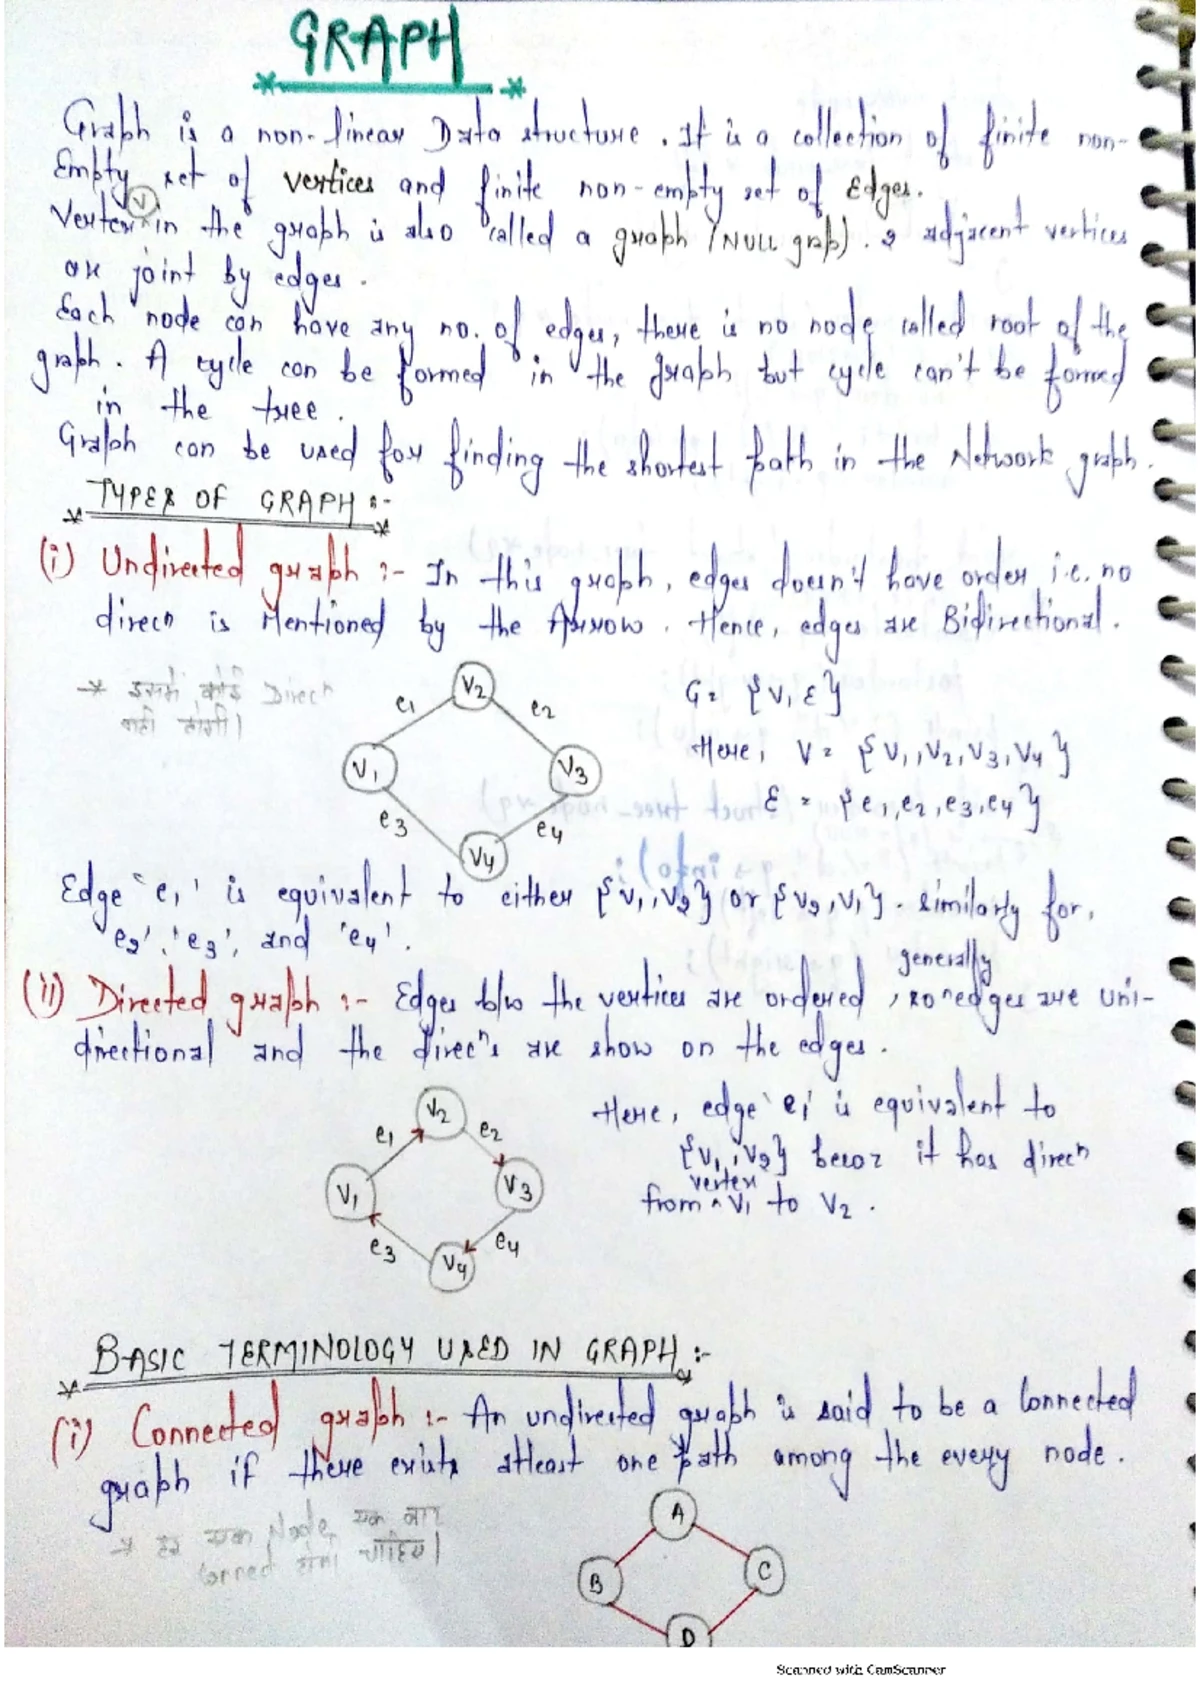 GRAPH
Graph is a non-linear Data structure. It is a collection of finite non-
Empty set of vertices and finite non-empty set of Edges.
Vertex (V) in the graph is also called a graph (NULL grap). 2 adjacent vertices
are joint by edges.
Each node can have any no. of edges, there is no node called root of the
graph. A cycle can be formed in the graph but cycle can't be formed
in the tree.
Graph can be used for finding the shortest path in the Network graph.
TYPES OF GRAPH :-
(i) Undirected graph :- In this graph, edges doesn't have order i.e. no
direcn is Mentioned by the Arrow. Hence, edges are Bidirectional.
→ इसमें कोई Direcn
नही होगी।
V1 V2 V3 V4
e1 e2 e3 e4
G = {V, E}
Here, V = {V1, V2, V3, V4}
E = {e1, e2, e3, e4}
Edge 'e1' is equivalent to either {V1, V2} or {V2, V1}. Similarly for,
'e2', 'e3', and 'e4'.
(ii) Directed graph :- Edges b/w the vertices are ordered, so generally edges are uni-
directional and the direcns are show on the edges.
V1 V2 V3 V4
e1 e2 e3 e4
Here, edge 'e1' is equivalent to
{V1, V2} becoz it has direcn
from vertex V1 to V2.
BASIC TERMINOLOGY USED IN GRAPH :-
(i) Connected graph :- An undirected graph is said to be a Connected
graph if there exists atleast one path among the every node.
→ हर एक Node एक बार
conned होना चाहिये।
A
B C
D
Scanned with CamScanner